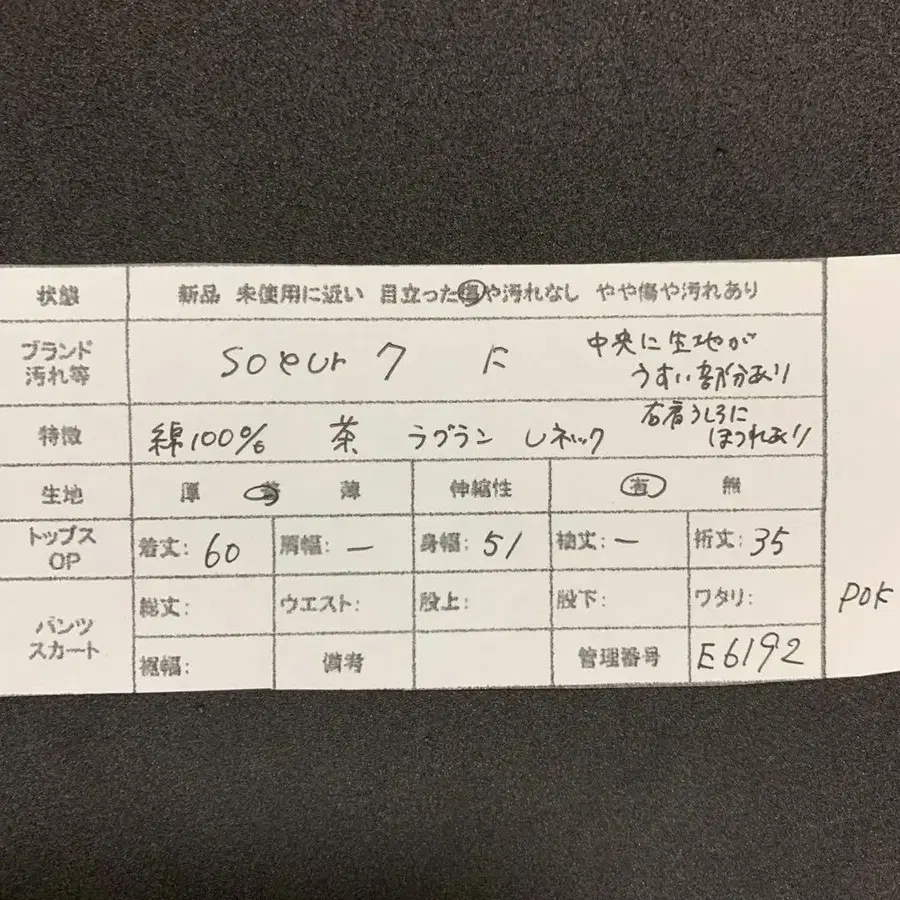 状態 新品 未使用に近い 目立った傷や汚れなし やや傷や汚れあり
ブランド
汚れ等
soeur 7 に
中央に生地が
うすい部分あり
特徴 綿100% 茶 ラグラン Uネック
右肩うしろに
ほつれあり
生地 厚 普 薄 伸縮性 有 無
トップス
OP
着丈: 60 肩幅: ー 身幅: 51 袖丈: ー 裄丈: 35
パンツ
スカート
総丈: ウエスト: 股上: 股下: ワタリ:
裾幅: 備考 管理番号 E6192
POK